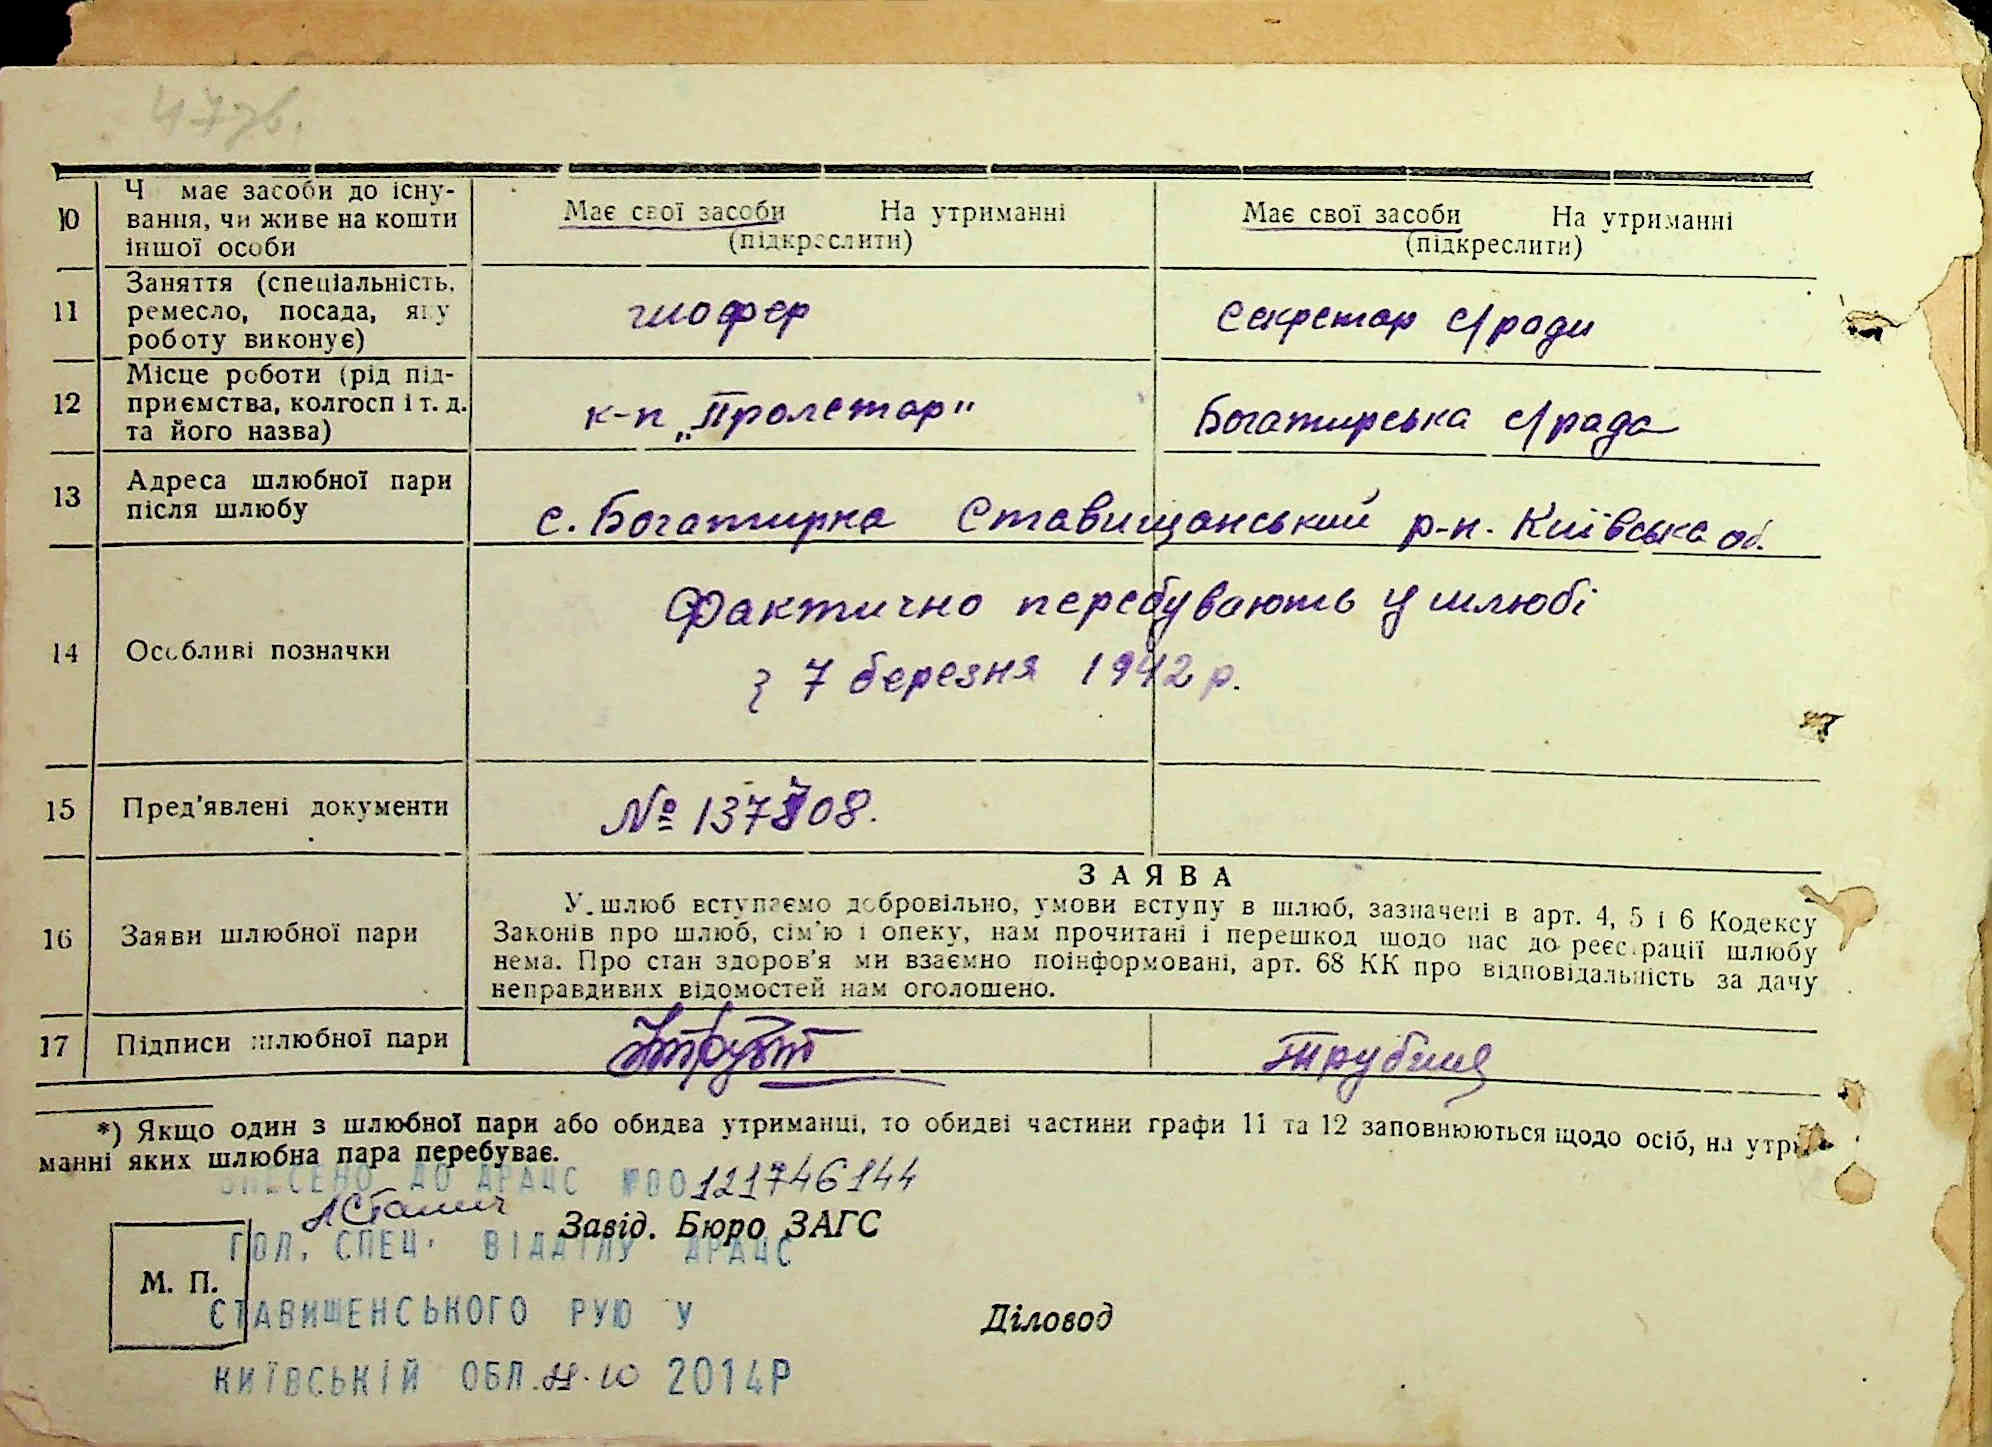 47зв.
10 Ч має засоби до існу-
вання, чи живе на кошти
іншої особи
Має свої засоби На утриманні
(підкреслити)
Має свої засоби На утриманні
(підкреслити)
11 Заняття (спеціальність,
ремесло, посада, яку
роботу виконує)
шофер
Секретар с/ради
12 Місце роботи (рід під-
приємства, колгосп і т. д.
та його назва)
к-п „Пролетар"
Богатирська с/рада
13 Адреса шлюбної пари
після шлюбу
с. Богатирка Ставищанський р-н. Київська об.
14 Особливі позначки
Фактично перебувають у шлюбі
з 7 березня 1942 р.
15 Пред'явлені документи
№ 137708.
16 Заяви шлюбної пари
ЗАЯВА
У шлюб вступаємо добровільно, умови вступу в шлюб, зазначені в арт. 4, 5 і 6 Кодексу
Законів про шлюб, сім'ю і опеку, нам прочитані і перешкод щодо нас до реєстрації шлюбу
нема. Про стан здоров'я ми взаємно поінформовані, арт. 68 КК про відповідальність за дачу
неправдивих відомостей нам оголошено.
17 Підписи шлюбної пари
*) Якщо один з шлюбної пари або обидва утриманці, то обидві частини графи 11 та 12 заповнюються щодо осіб, на утри-
манні яких шлюбна пара перебуває.
ВНЕСЕНО ДО ДРАЦС №00121746144
Завід. Бюро ЗАГС
ГОЛ. СПЕЦ. ВІДДІЛУ ДРАЦС
М. П.
СТАВИЩЕНСЬКОГО РУЮ У
Діловод
КИЇВСЬКІЙ ОБЛ. 2014Р